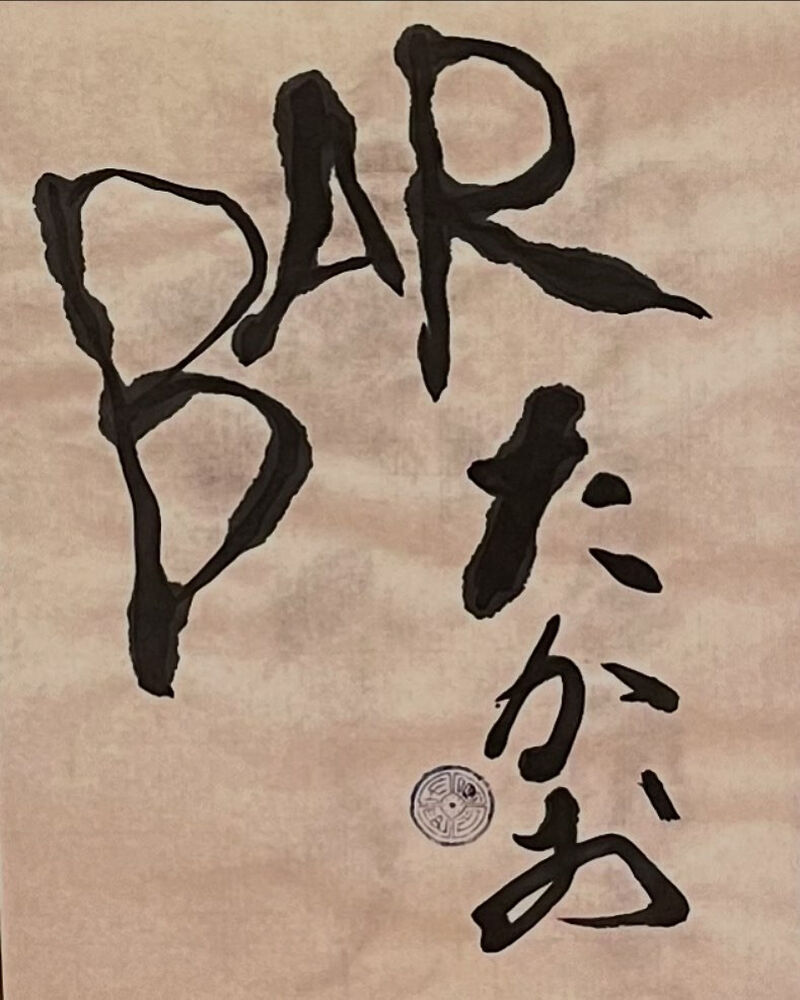 BAR
たかお